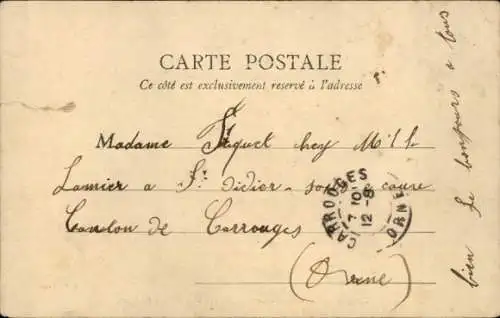 CARTE POSTALE
Ce côté est exclusivement reservé à l'adresse
Madame Fequet chez Mlle
Lamier a St didier-sous
Canton de Carrouges
(Orne)
CARROUGES
7 10
12 -8
ORNE
bien le bonjours a tous